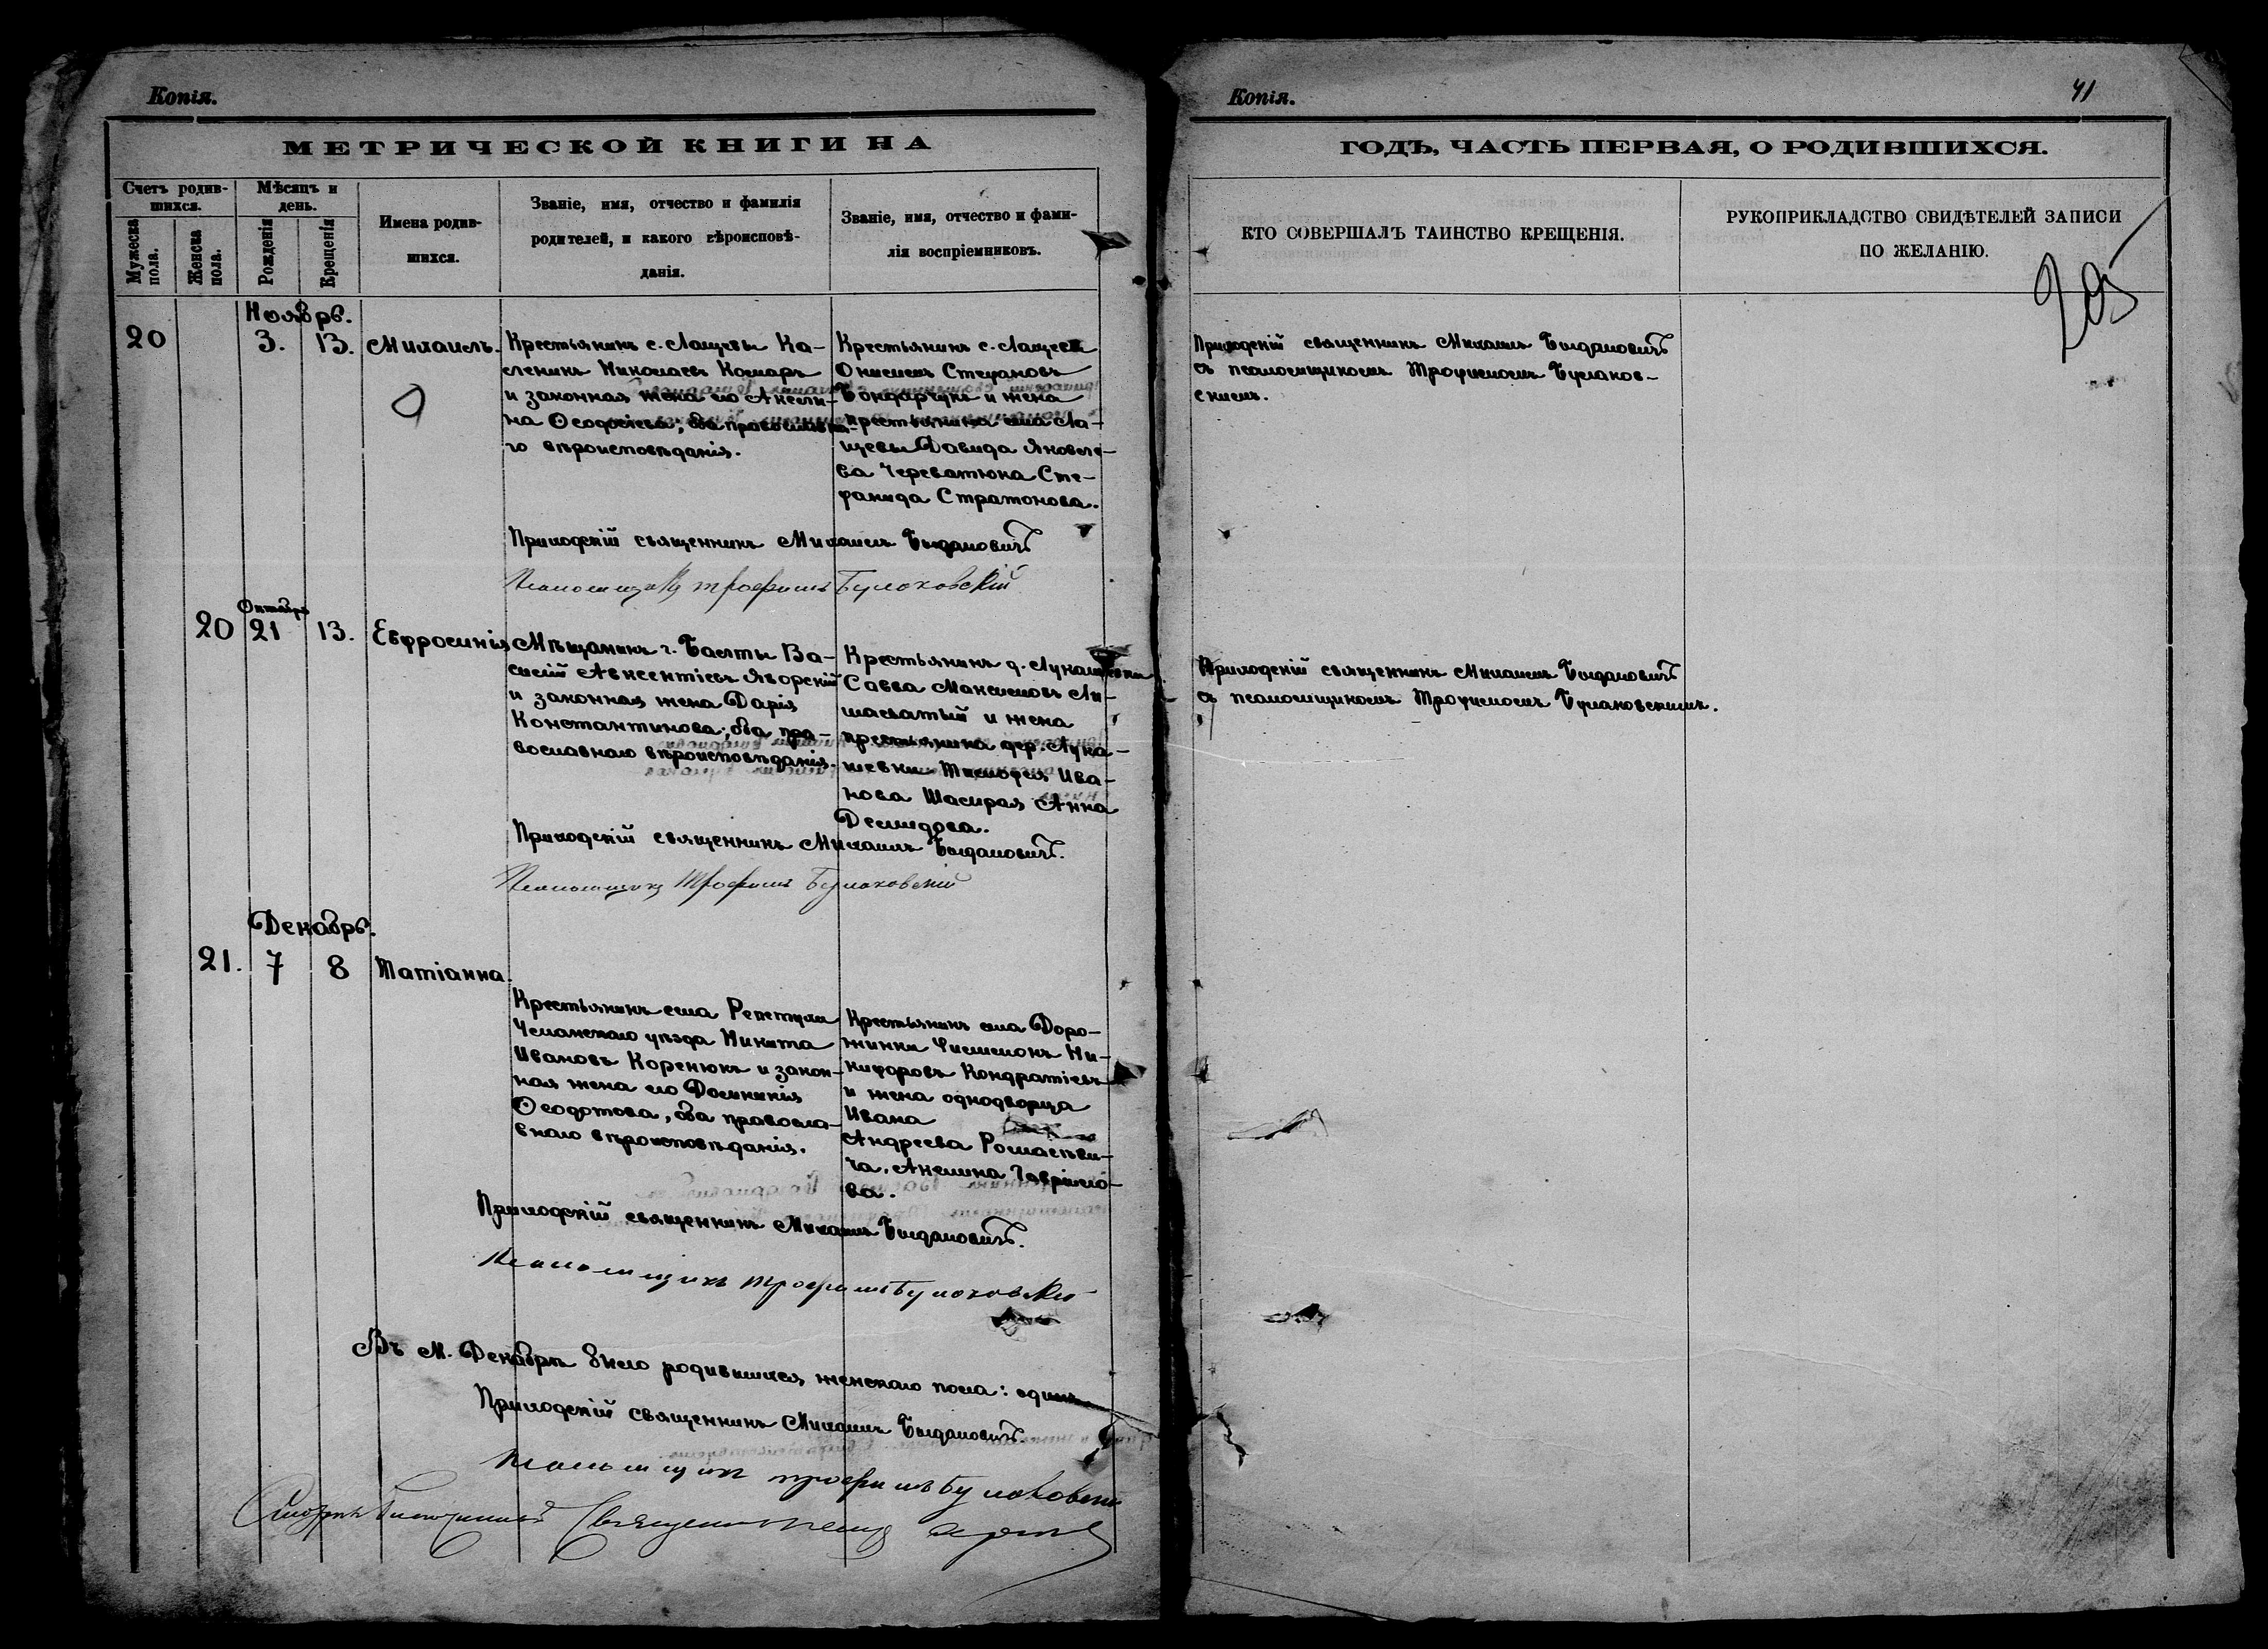 Копія.
МЕТРИЧЕСКОЙ КНИГИ НА
Счетъ родив-
шихся.
Мѣсяцъ и
день.
Мужеска
пола.
Женска
пола.
Рожденія
Крещенія
Имена родив-
шихся.
Званіе, имя, отчество и фамилія
родителей, и какого вѣроисповѣ-
данія.
Званіе, имя, отчество и фами-
лія воспріемниковъ.
Ноябрь.
20 3. 13. Михаилъ.
Крестьянинъ с. Лащевы Ка-
леникъ Николаевъ Комаръ
и законная жена его Акили-
на Ѳеодосіева; оба православна-
го вѣроисповѣданія.
Крестьянинъ с. Лащевы
Онисимъ Стефановъ
Бондарчукъ и жена
крестьянина села Ла-
щевы Давида Яковле-
ва Череватюка Сте-
фанида Стратонова.
Приходскій священникъ Михаилъ Богдановичъ
Псаломщикъ Трофимъ Булаховскій
Октябрь
20 21 13. Евфросинія
Мѣщанинъ г. Балты Ва-
силій Авксентіевъ Яворскій
и законная жена Дарія
Константинова; оба пра-
вославнаго вѣроисповѣданія.
Крестьянинъ д. Лукашевки
Савва Максимовъ Ли-
шаватый и жена
крестьянина дер. Лука-
шевки Тимофея Ива-
нова Анна
Демидова.
Приходскій священникъ Михаилъ Богдановичъ.
Псаломщикъ Трофимъ Булаховскій
Декабрь.
21. 7 8 Татіанна.
Крестьянинъ села
уѣзда Никита
Ивановъ Коренюкъ и закон-
ная жена его Домникія
Ѳеодотова, оба правосла-
внаго вѣроисповѣданія.
Крестьянинъ села Доро-
жинки Филимонъ Ни-
кифоровъ Кондратіевъ
и жена однодворца
Ивана
Андреева Ромасеви-
ча, Акилина Гавріило-
ва.
Приходскій священникъ Михаилъ Богдановичъ.
Псаломщикъ Трофимъ Булаховскій
Въ М. Декабрѣ было родившихся женскаго пола: одинъ
Приходскій священникъ Михаилъ Богдановичъ.
Псаломщикъ Трофимъ Булаховскій
Копія.
41
ГОДЪ, ЧАСТЬ ПЕРВАЯ, О РОДИВШИХСЯ.
КТО СОВЕРШАЛЪ ТАИНСТВО КРЕЩЕНІЯ.
РУКОПРИКЛАДСТВО СВИДѢТЕЛЕЙ ЗАПИСИ
ПО ЖЕЛАНІЮ.
205
Приходскій священникъ Михаилъ Богдановичъ
съ псаломщикомъ Трофимомъ Булахов-
скимъ.
Приходскій священникъ Михаилъ Богдановичъ
съ псаломщикомъ Трофимомъ Булаховскимъ.